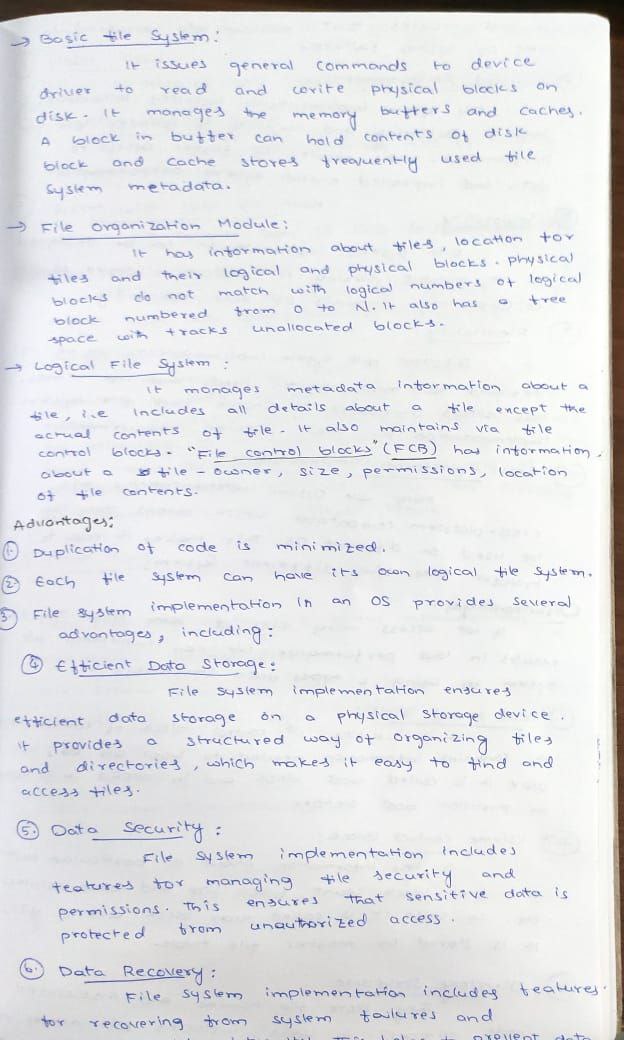 → Basic file System:
It issues general commands to device
driver to read and write physical blocks on
disk. It manages the memory buffers and caches.
A block in buffer can hold contents of disk
block and cache stores freavuently used file
System metadata.
→ File Organization Module:
It has information about files, location for
files and their logical and physical blocks. physical
blocks do not match with logical numbers of logical
block numbered from 0 to N. It also has a free
space with tracks unallocated blocks.
→ Logical File System :
It manages metadata information about a
file, i.e includes all details about a file encept the
actual contents of file. It also maintains via file
control blocks. "File control blocks" (FCB) has information
about a file - owner, size, permissions, location
of file contents.
Advantages:
1. Duplication of code is minimized.
2. Each file system can have its own logical file System.
3. File system implementation in an OS provides several
advantages, including:
4. Efficient Data Storage:
File System implementation ensures
efficient data storage on a physical storage device.
it provides a structured way of organizing files
and directories, which makes it easy to find and
access files.
5. Data Security :
File System implementation includes
features for managing file security and
permissions. This ensures that sensitive data is
protected from unauthorized access.
6. Data Recovery:
File System implementation includes features
for recovering from system failures and
prevent data